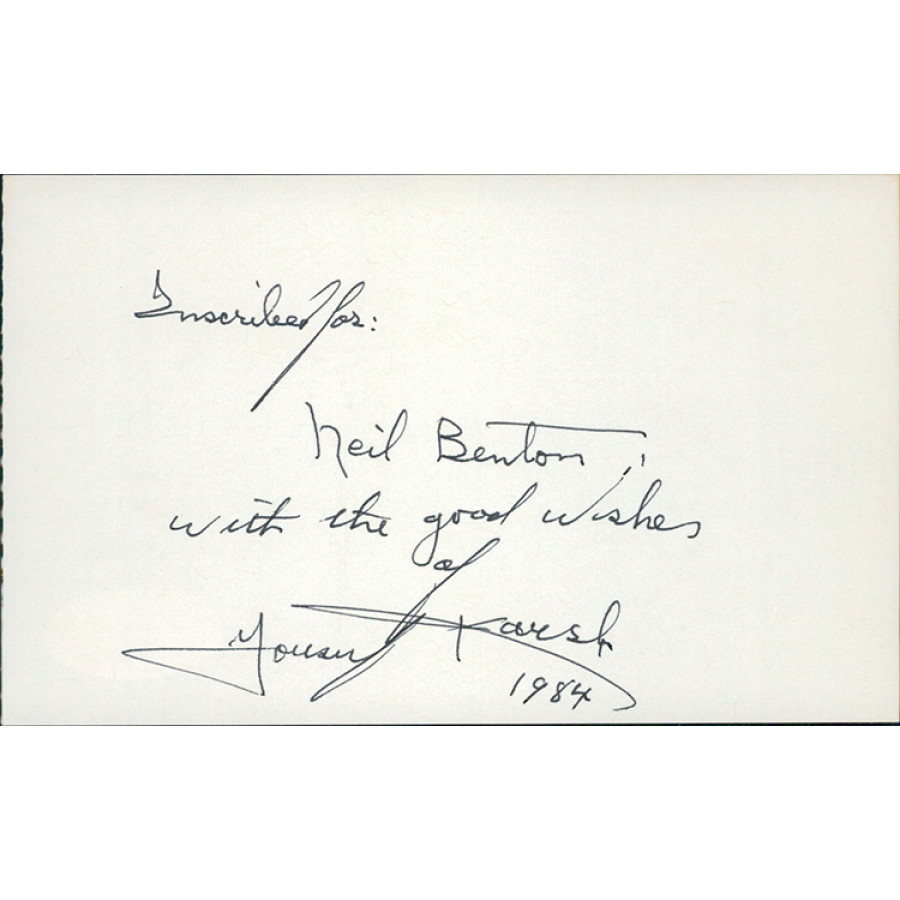 Inscribed for:
Neil Benton,
with the good wishes
of
Yousuf Karsh
1984